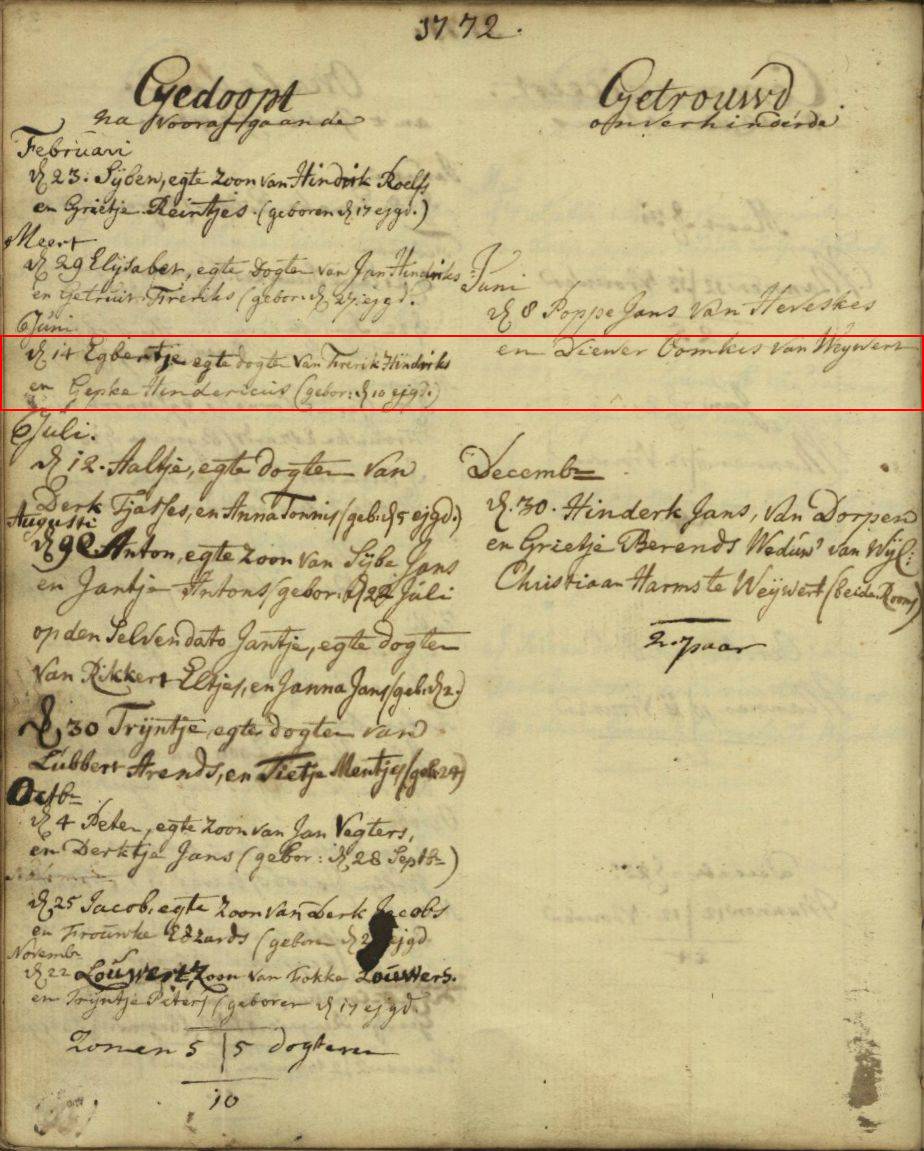 1772.
Gedoopt
na voorafgaande
Februari
d 23. Sijben, egte zoon van Hindrik Roelfs
en Grietje Reintjes. (geboren d 17 ejgd.)
Meert
d 29 Elijsabet, egte Dogter van Jan Hindriks
en Getruit Freriks (gebor: d 27 ejgd.
Juni
d 14 Egbertje egte dogter van Frerik Hindriks
en Gepke Hindericus (gebor: d 10 ejgd.)
Juli.
d 12. Aaltje, egte dogter van
Derk Tjasses, en Anna Tonnis (geb. d 5 ejgd.)
Augusti
d 9 Anton, egte zoon van Sijbe Jans
en Jantje Antons (gebor. d 22 Juli
op den Selven dato Jantje, egte dogter
van Rikkert Eltjes, en Janna Jans (geb. d 2.)
d 30 Trijntje, egte dogter van
Lubbert Arends, en Tietje Mentjes (geb. 24)
Octbr
d 4 Peter, egte zoon van Jan Vegters,
en Derktje Jans (gebor: d 28 Septbr)
d 25 Jacob, egte zoon van Derk Jacobs
en Frouwke Edzards (geboren d 2 ejgd
Novembr
d 22 Louwert, Zoon van Fokke Louwers.
en Trijntje Peters (geboren d 17 ejgd.
zonen 5 | 5 dogteren
10
Getrouwd
onverhinderde
Juni
d 8 Poppe Jans van Heveskes
en Diewer Oomkes van Weywert
Decembr
d. 30. Hinderk Jans, van Dorpen
en Grietje Berends Weduw van Wijl:
Christiaan Harms te Weywert (beide Rooms)
2. paar